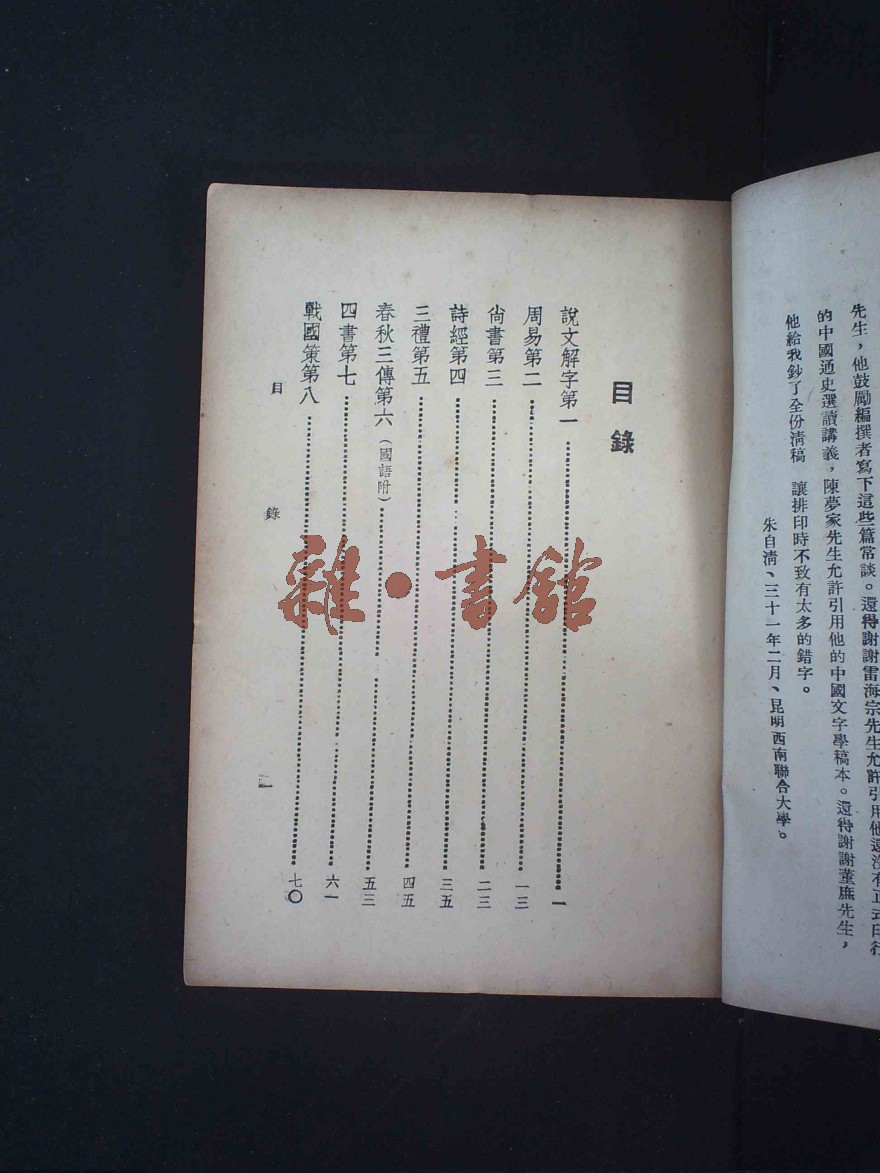 先生，他鼓勵編撰者寫下這些篇常談。還得謝謝雷海宗先生允許引用他還沒有正式印行
的中國通史選讀講義，陳夢家先生允許引用他的中國文字學稿本。還得謝謝董庶先生，
他給我鈔了全份清稿 讓排印時不致有太多的錯字。
朱自清、三十一年二月、昆明西南聯合大學。
目錄
說文解字第一 一
周易第二 一三
尚書第三 二三
詩經第四 三五
三禮第五 四五
春秋三傳第六（國語附） 五三
四書第七 六一
戰國策第八 七〇
目 錄 一
雜·書館